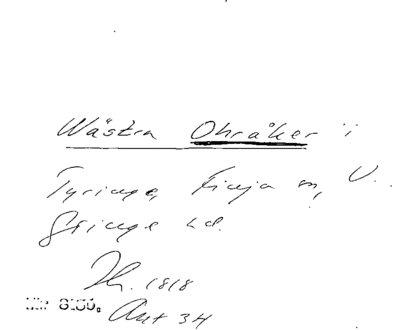 Wästra Ohråker i
Tyringe, Finja sn, V.
Göinge hd.
Jh. 1818
Ant 34